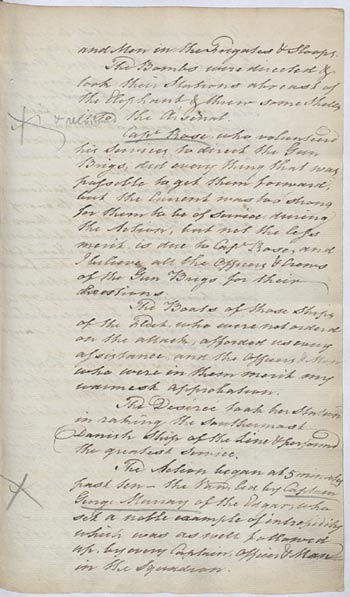 and Men in the Frigates & Sloops.
The Bombs were directed &
took their Stations abreast of
the Elephant & threw some Shells
into the Arsenal.
Capt. Rose who volunteered
his Services to direct the Gun
Brigs, did every thing that was
possible to get them forward,
but the Current was too strong
for them to be of Service during
the Action, but not the less
merit is due to Capt. Rose, and
I believe all the Officers & Crews
of the Gun Brigs for their
exertions.
The Boats of those Ships
of the Fleet who were not ordered
on the attack, afforded us every
assistance, and the Officers & Men
who were in them merit my
warmest approbation.
The Desiree took her Station
in raking the Southernmost
Danish Ship of the Line & performed
the greatest Service.
The Action began at 5 minutes
past ten – the Van led by Captain
George Murray of the Edgar, who
set a noble example of intrepidity
which was as well followed
up by every Captain, Officer & Man
in the Squadron.